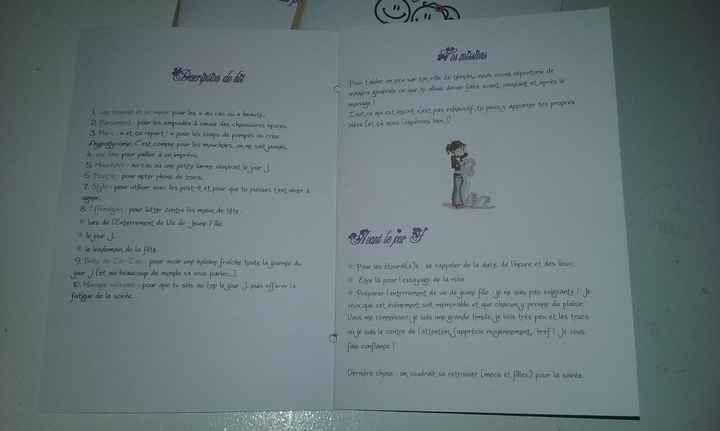 Description du kit
1. Une trousse et un miroir pour les « au cas où » beauté.
2. Pansement : pour les ampoules à cause des chaussures neuves.
3. Mars : « et ça repart ! » pour les coups de pompes ou crise
d'hypoglycémie. C'est comme pour les mouchoirs, on ne sait jamais.
pour pallier à un imprévu.
5. Mouchoirs : au cas où une petite larme viendrait le jour J.
6. pour noter pleins de trucs.
7. Stylo : pour utiliser avec les post-it et pour que tu puisses t'en servir à
signer.
8. Efferalgan : pour lutter contre les maux de tête :
lors de l'Enterrement de Vie de Jeune Fille.
le jour J.
le lendemain de la fête.
9. Boîte de Tic-Tac : pour avoir une haleine fraîche toute la journée du
jour J (et oui beaucoup de monde va vous parler...)
10. Masque : pour que tu sois au top le jour J, puis effacer la
fatigue de la soirée.
Tes missions
Pour t'aider un peu sur ton rôle de témoin, nous avons répertorié de
manière générale ce que tu allais devoir faire avant, pendant et après le
mariage !
Tout ce qui est inscrit n'est pas exhaustif, tu peux y apporter tes propres
idées (et ça nous l'espérons bien !)
Avant le jour J
Pour les étourdi(e)s : se rappeler de la date, de l'heure et des lieux.
Etre là pour l'essayage de la robe
Préparer l'enterrement de vie de jeune fille : je ne suis pas exigeante ! Je
veux que cet événement soit mémorable et que chacun y prenne du plaisir.
Vous me connaissez, je suis une grande timide, je bois très peu et les trucs
où je suis le centre de l'attention, j'apprécie moyennement, bref ! Je vous
fais confiance !
Dernière chose : on voudrait se retrouver (mecs et filles) pour la soirée.